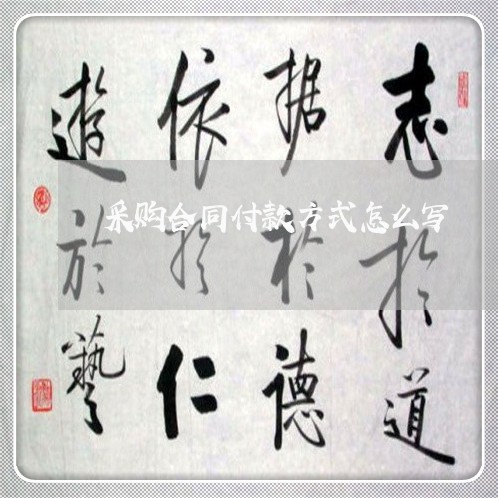 志於道
据於德
依於仁
遊於藝
采购合同付款方式怎么写